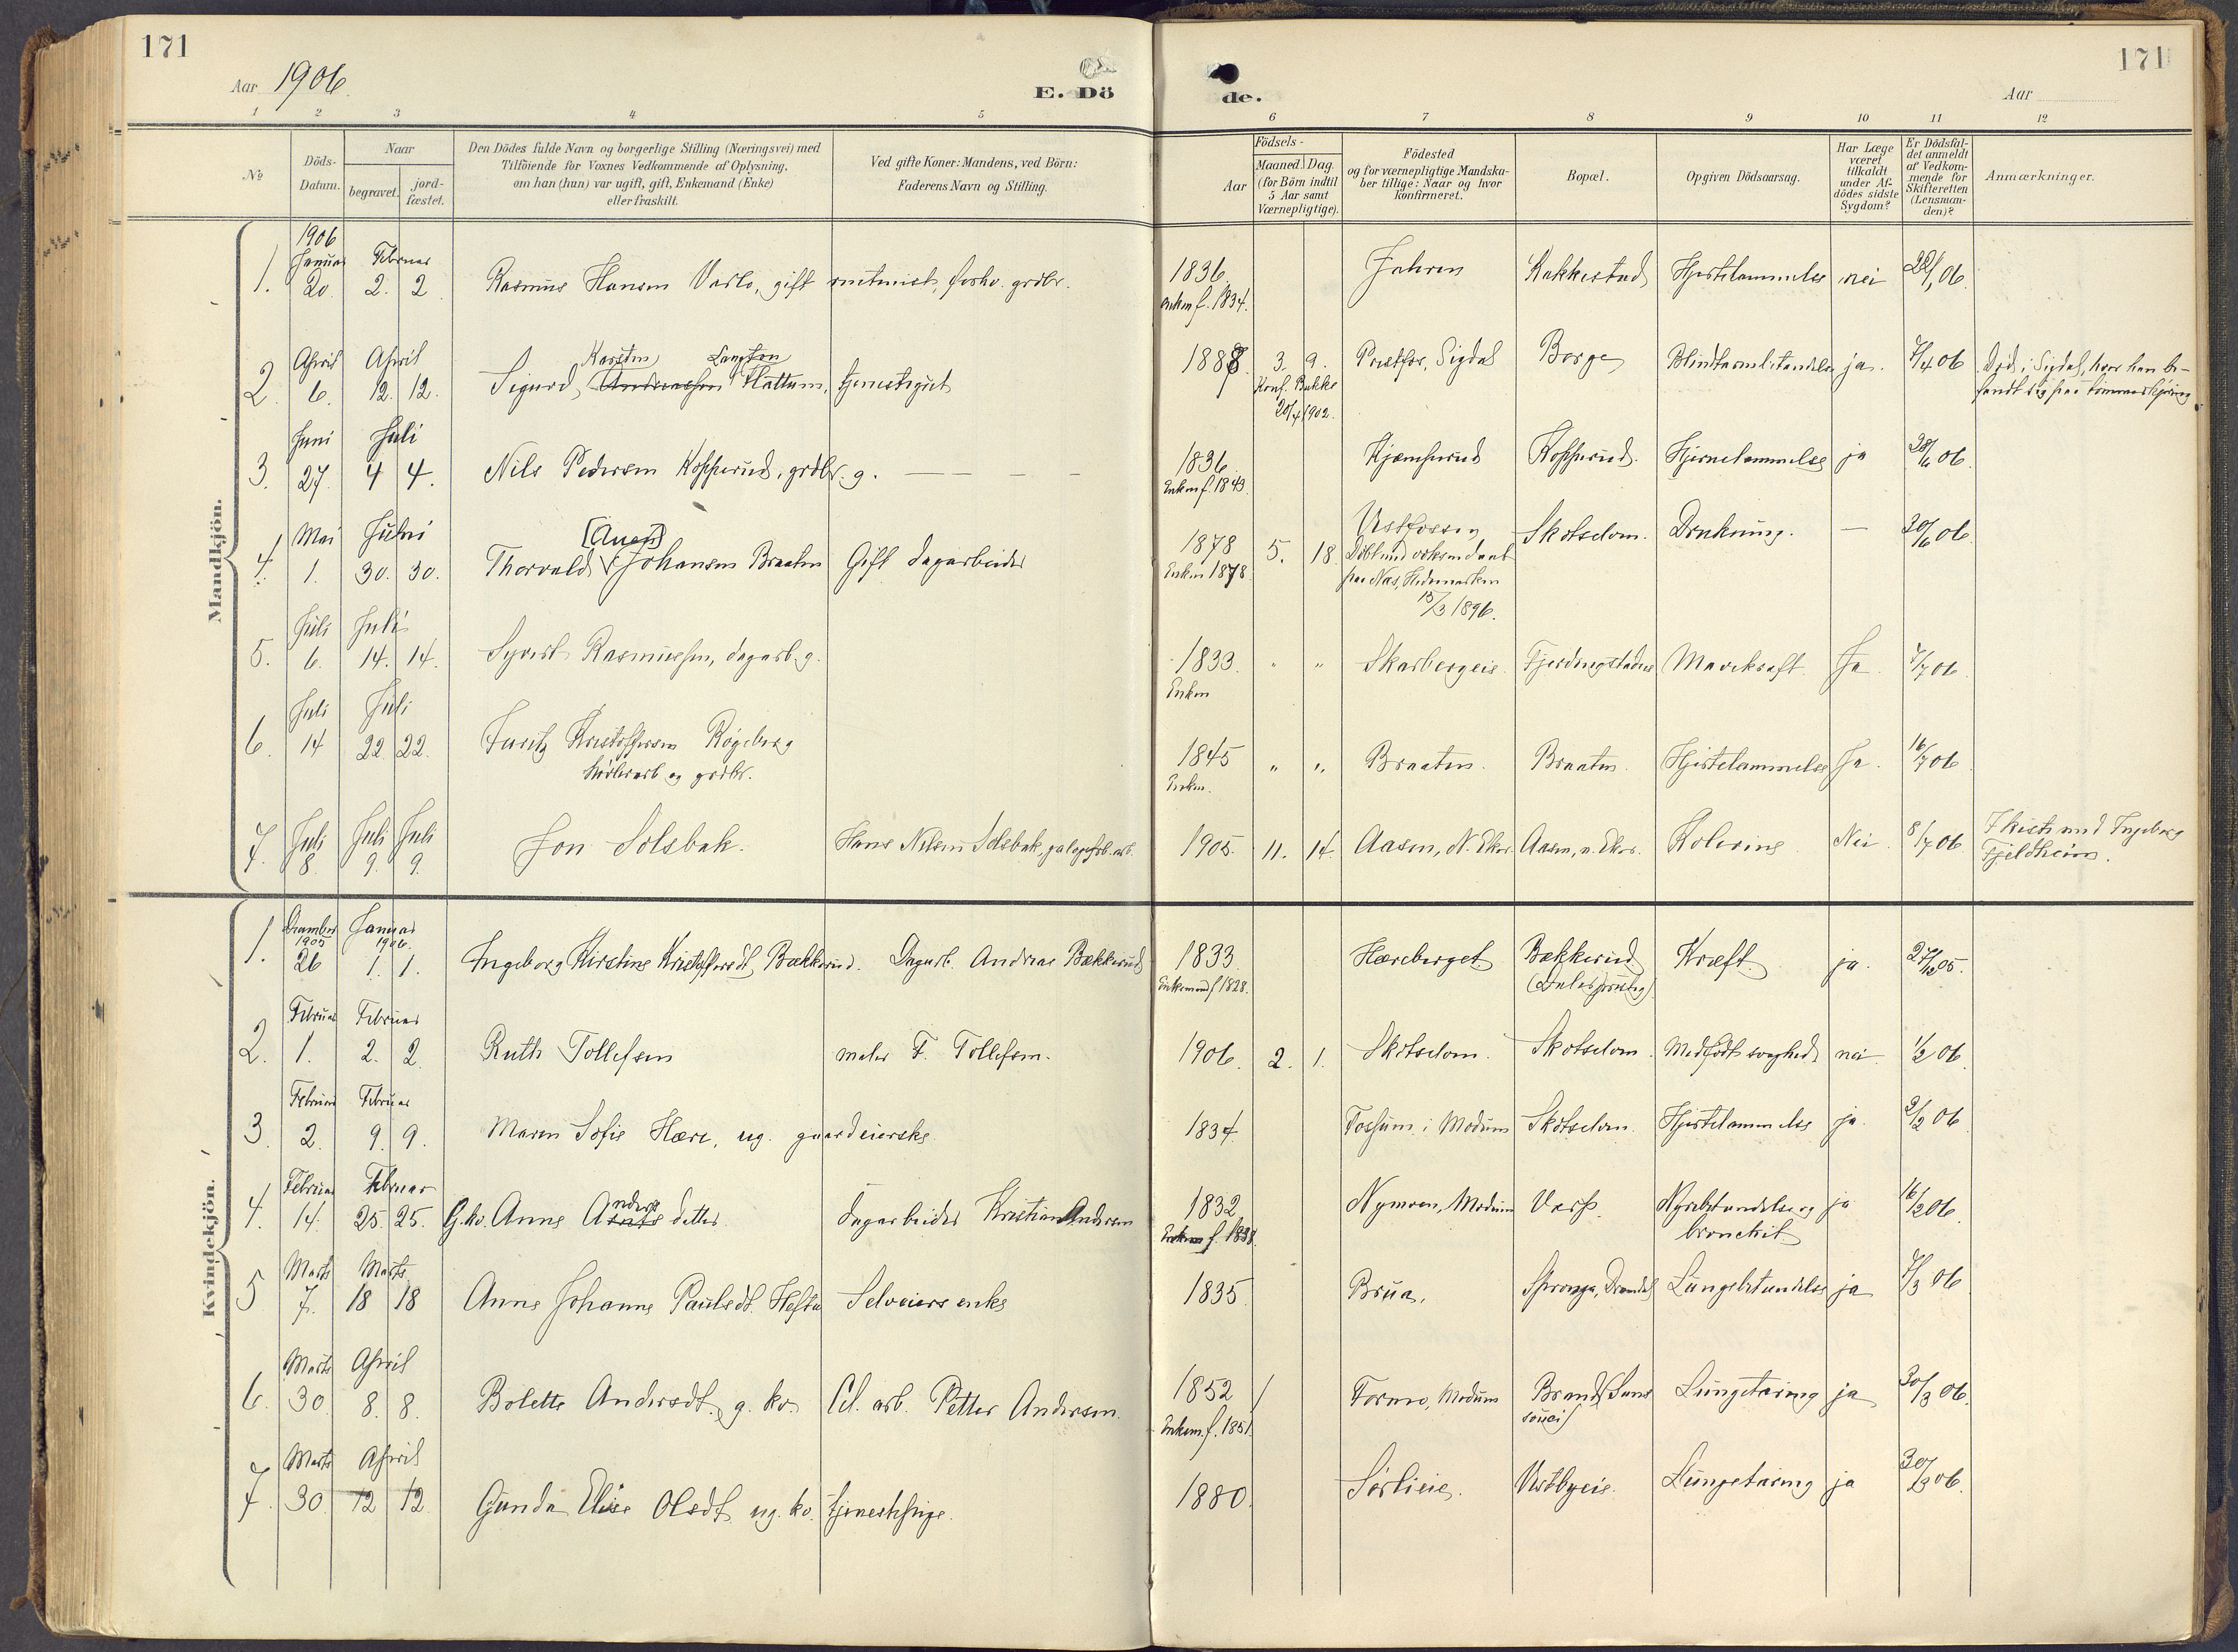 171
171
Aar 1906.
E. Dö
de.
Aar
1 2 3 4 5 6 7 8 9 10 11 12
No
Döds-Datum.
Naar
begravet.
jord-fæstet.
Den Dödes fulde Navn og borgerlige Stilling (Næringsvei) med
Tilföiende for Voxnes Vedkommende af Oplysning,
om han (hun) var ugift, gift, Enkemand (Enke)
eller fraskilt.
Ved gifte Koner: Mandens, ved Börn:
Faderens Navn og Stilling.
Födsels-
Aar
Maaned. Dag.
(for Börn indtil
5 Aar samt
Værnepligtige).
Födested
og for værnepligtige Mandska-
ber tillige: Naar og hvor
konfirmeret.
Bopæl.
Opgiven Dödsaarsag.
Har Læge
været
tilkaldt
under Af-
dödes sidste
Sygdom?
Er Dödsfal-
det anmeldt
af Vedkom-
mende for
Skifteretten
(Lensman-
den)?
Anmærkninger.
Mandkjön.
1906
Januar Februar
1. 20. 2. 2 Rasmus Hansen Varlo, gift forhv. grdbr. 1836 Jahren Kakkestad Hjertelammelse nei 22/1 06.
enken f. 1834.
April April
Karsten Langton
2. 6. 12. 12. Sigurd Hattum, tjenestegut 1888 3. 9. Prestfos, Sigdal Borge Blindtarmbetændelse ja. 7/4 06 Död i Sigdal, hvor han be-
fandt sig paa tömmerkjöring
Konf. Bakke
20/4 1902.
Juni Juli
3. 27 4 4. Nils Pedersen Kopperud, grdbr. g. 1836 Kjæmperud Kopperud. Hjernelammelse ja 28/6 06.
Enken f. 1843.
Mai Juni
[Auen]
4. 1. 30. 30. Thorvald Johansen Braaten Gift dagarbeider 1878 5. 18. Vestfossen Skotselven. Drukning. — 30/6 06.
Enken 1878
Döbt ved voksendaab
paa Næs, Hedemarken
15/3 1896.
Juli Juli
5. 6. 14. 14. Syvert Rasmussen, dagarb. g. 1833. " " Skarbergeie Fjerdingstadeie Mavekræft. Ja 7/7 06
Enken
Juli Juli
6. 14 22. 22. Furitz Kristoffersen Rögeberg 1845 " " Braaten. Braaten. Hjertelammelse Ja. 16/7 06
og grdbr.
Enken.
7. Juli 8. Juli 9. Juli 9. Jon Solsbak. Hans Nilsen Solsbak, 1905. 11. 14. Aasen, N. Eker. Aasen, n. Eker. Kolerine Nei. 8/7 06 I kiste med Ingeborg
Fjeldheim.
Kvindekjön.
December 1905 Januar 1906.
1. 26 1. 1. Ingeborg Kirstine Kristoffersdt. Bækkerud. Dagarb. Andreas Bækkerud 1833 Hæreberget Bækkerud Kræft. ja. 27/12 05.
Enkemand f. 1828.
Februar Februar
2. 1. 2. 2. Ruth Tollefsen maler F. Tollefsen. 1906. 2. 1. Skotselven. Skotselven. Medfödt svaghed nei. 1/2 06
Februar Februar
3 2. 9. 9. Maren Sofie Hære, ug. gaardeierske 1834. Fossum i Modum Skotselven. Hjertelammelse ja. 2/2 06
Februar Februar
4. 14. 25. 25. G.kv. Anne Andersdatter dagarbeider Kristian Andersen 1832 Nymoen, Modum Varp. Nyrebetændelse og ja 16/2 06
bronchit.
Enkem f. 1838.
Marts Marts
5 7. 18 18 Anne Johanne Paulsdt. Hofta Selveiers enke 1835 Brua. Spronga, Lungebetændelse ja 7/3 06
Marts April
6. 30. 8. 8. Bolette Andersdt. g. kv. Cel. arb. Petter Andersen. 1852 Formo, Modum Brand (Sans Lungetæring ja 30/3 06.
souci)
Enkem. f. 1851.
Marts April
7. 30. 12 12 Gunda Elise Olsdt. ug. kv. tjenestepige. 1880. Sörlieie. Vestbyeie. Lungetæring ja 30/3 06.